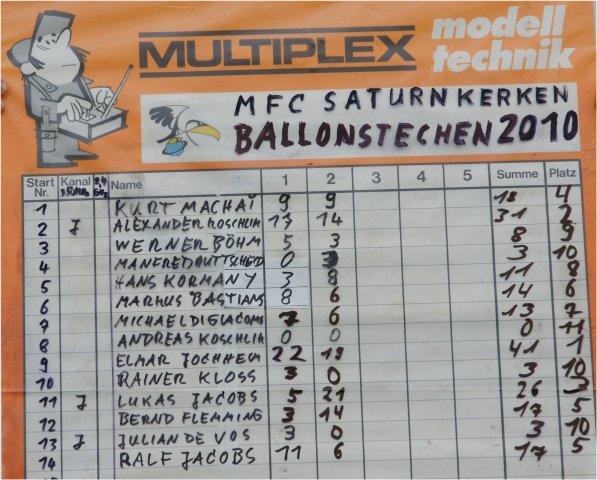 MULTIPLEX modell technik
MFC SATURN KERKEN
BALLONSTECHEN 2010
Start Nr. Kanal Name 1 2 3 4 5 Summe Platz
1 KURT MACHAÏ 9 9 18 4
2 J ALEXANDER KOSCHLIK 13 14 31 2
3 WERNER BÖHM 5 3 8 9
4 MANFRED 0 3 3 10
5 HANS KORMANY 3 8 11 8
6 MARKUS BASTIANS 8 6 14 6
7 MICHAEL DIGIACOMO 7 6 13 7
8 ANDREAS KOSCHLIK 0 0 0 11
9 ELMAR JOCHHEM 22 19 41 1
10 RAINER KLOSS 3 0 3 10
11 J LUKAS JACOBS 5 21 26 3
12 BERND FLEMMING 3 14 17 5
13 J JULIAN DE VOS 3 0 3 10
14 RALF JACOBS 11 6 17 5